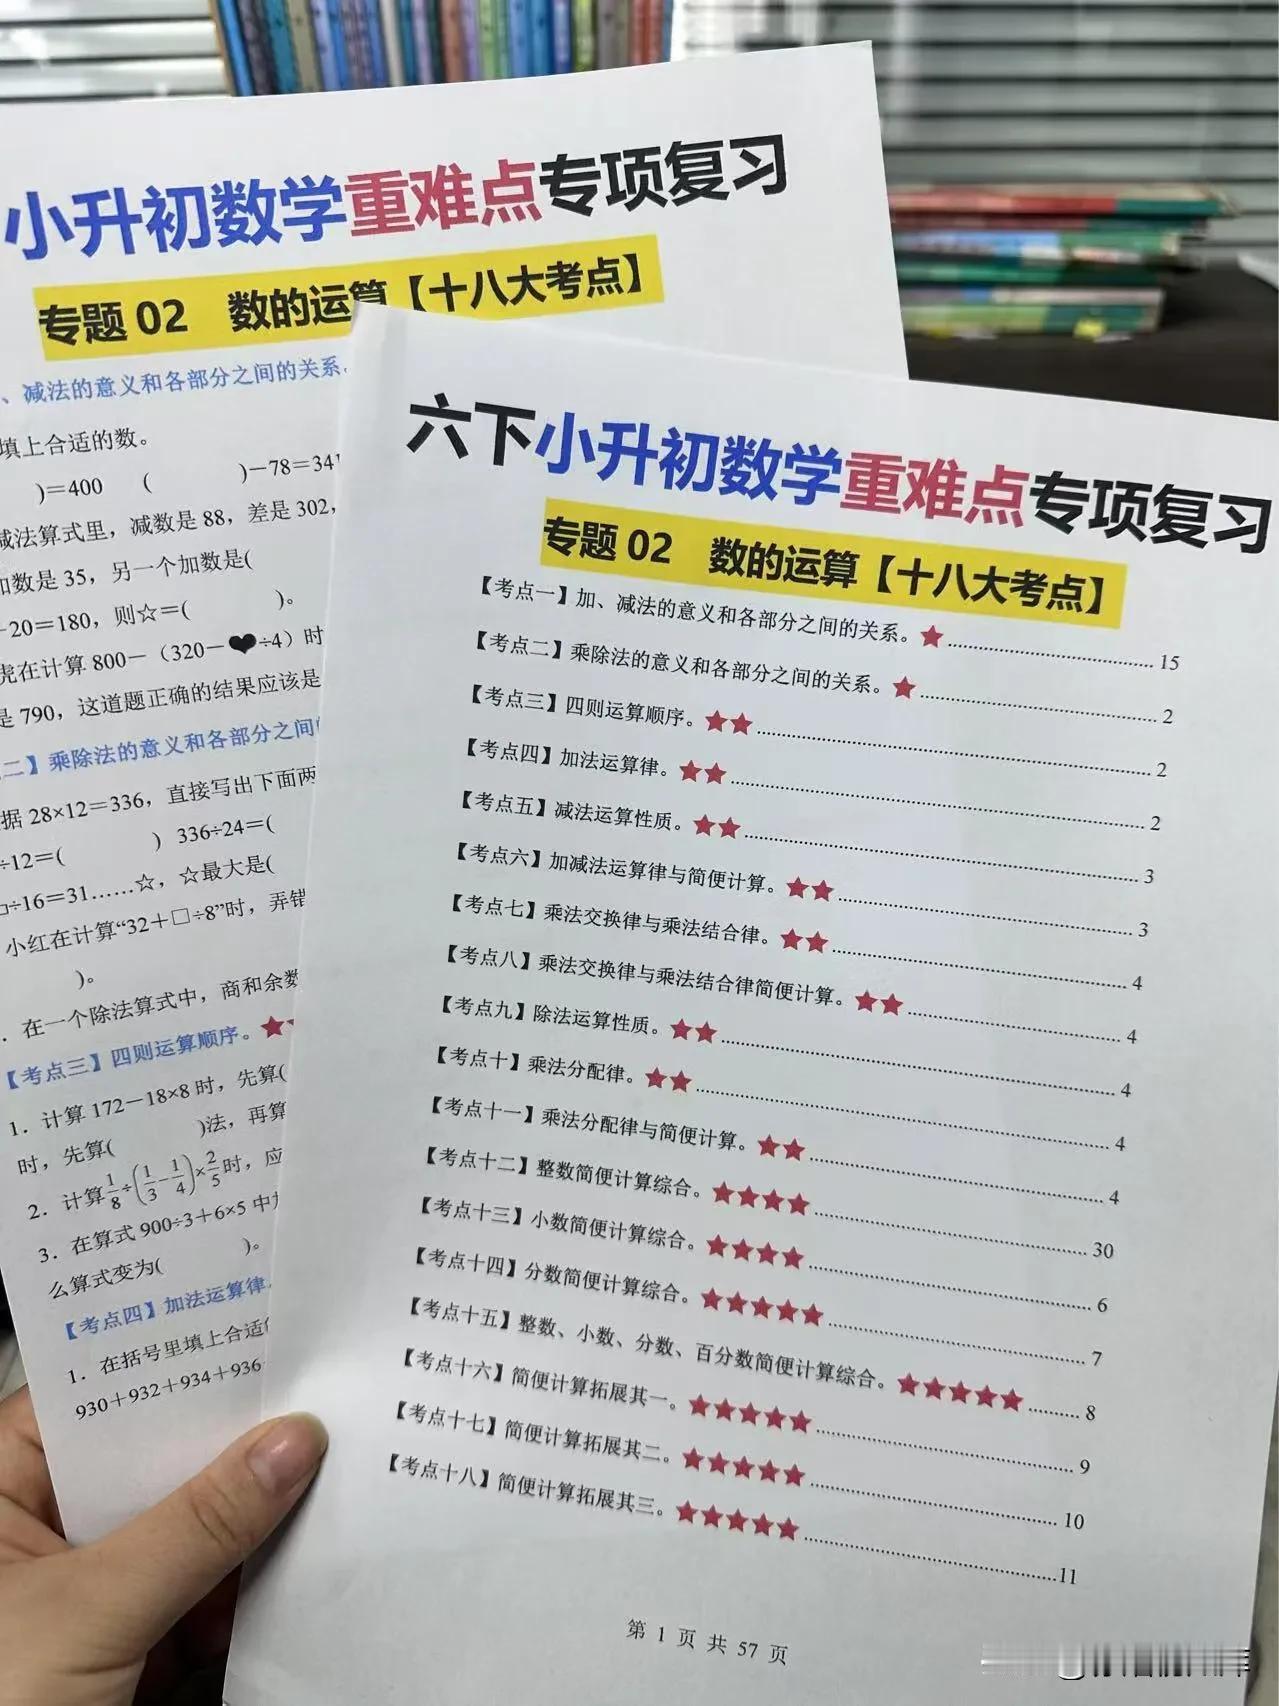 小升初数学重难点专项复习
专题 02 数的运算【十八大考点】
、减法的意义和各部分之间的关系。
填上合适的数。
)=400 ( )-78=341
减法算式里，减数是 88，差是 302，
加数是 35，另一个加数是(
-20=180，则☆=( )。
虎在计算 800-（320-❤÷4）时
是 790，这道题正确的结果应该是
二】乘除法的意义和各部分之间
据 28×12=336，直接写出下面两
÷12=( ) 336÷24=(
□÷16=31……☆，☆最大是(
小红在计算“32+□÷8”时，弄错
)。
. 在一个除法算式中，商和余数
【考点三】四则运算顺序。★
1. 计算 172-18×8 时，先算(
时，先算( )法，再算
2. 计算1/8÷(1/3-1/4)×2/5时，应
3. 在算式 900÷3+6×5 中
么算式变为( )。
【考点四】加法运算律。
1. 在括号里填上合适
930+932+934+936
六下小升初数学重难点专项复习
专题 02 数的运算【十八大考点】
【考点一】加、减法的意义和各部分之间的关系。★ 15
【考点二】乘除法的意义和各部分之间的关系。★ 2
【考点三】四则运算顺序。★★ 2
【考点四】加法运算律。★★ 2
【考点五】减法运算性质。★★ 3
【考点六】加减法运算律与简便计算。★★ 3
【考点七】乘法交换律与乘法结合律。★★ 4
【考点八】乘法交换律与乘法结合律简便计算。★★ 4
【考点九】除法运算性质。★★ 4
【考点十】乘法分配律。★★ 4
【考点十一】乘法分配律与简便计算。★★ 4
【考点十二】整数简便计算综合。★★★★ 30
【考点十三】小数简便计算综合。★★★★ 6
【考点十四】分数简便计算综合。★★★★★ 7
【考点十五】整数、小数、分数、百分数简便计算综合。★★★★★ 8
【考点十六】简便计算拓展其一。★★★★★ 9
【考点十七】简便计算拓展其二。★★★★★ 10
【考点十八】简便计算拓展其三。★★★★★ 11
第 1 页 共 57 页